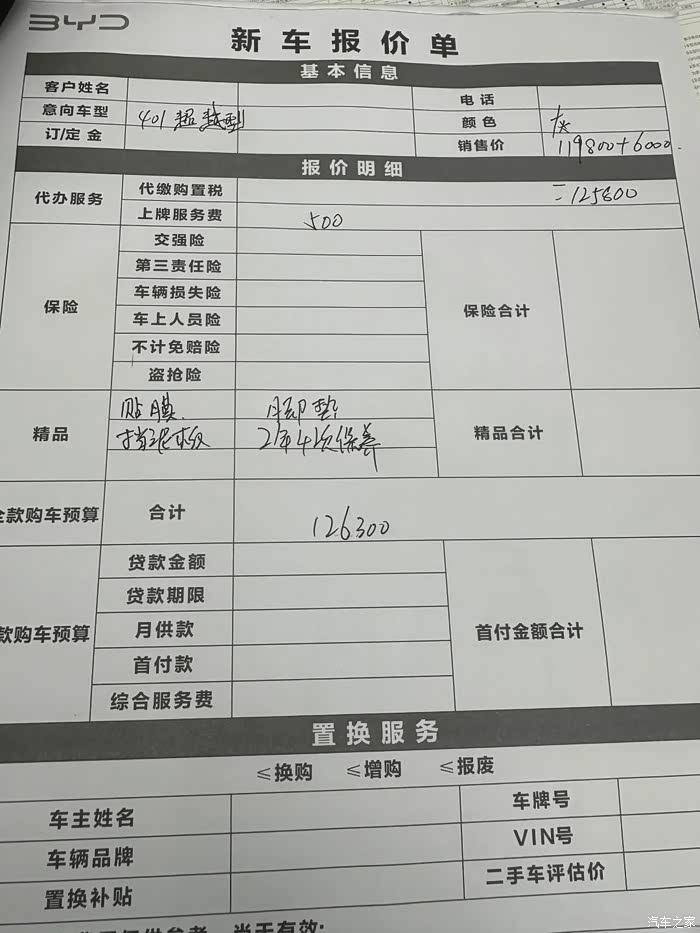 BYD
新车报价单
基本信息
客户姓名 电话
意向车型 401 超越型 颜色 灰
订/定金 销售价 119800+6000
报价明细 =125800
代办服务 代缴购置税
上牌服务费 500
交强险
第三责任险
保险 车辆损失险 保险合计
车上人员险
不计免赔险
盗抢险
贴膜 脚垫
精品 挡泥板 2年4次保养 精品合计
全款购车预算 合计 126300
贷款金额
贷款期限
款购车预算 月供款 首付金额合计
首付款
综合服务费
置换服务
≤换购 ≤增购 ≤报废
车主姓名 车牌号
车辆品牌 VIN号
置换补贴 二手车评估价
仅供参考，当天有效:
汽车之家